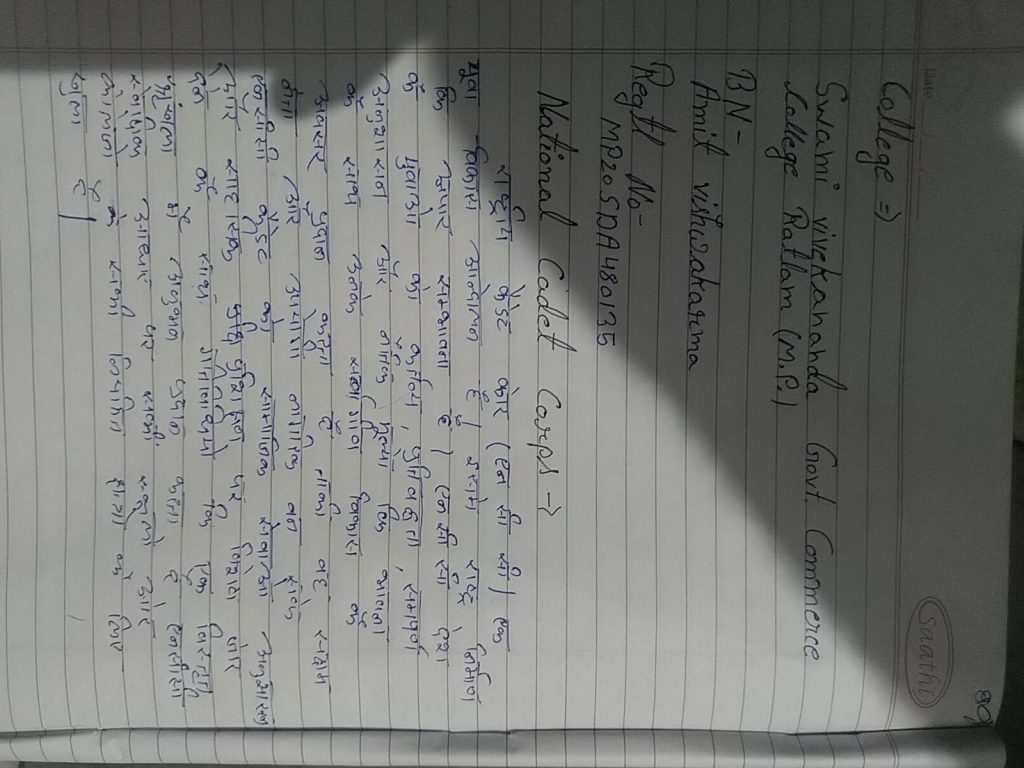 80
Saathi
College ⇒
Swami vivekananda Govt. Commerce
College Ratlam (M.P.)
BN -
Amit vishwakarma
Regtl No-
MP20SDA480135
National Cadet Corps →
राष्ट्रीय कैडेट कोर (एन सी सी) एक
युवा विकास आन्दोलन है। इसमे राष्ट्र निर्माण
कि अपार सम्भावना है। एन सी सी देश
के युवाओ को कर्तव्य, प्रतिबद्धता, समर्पण
अनुशासन और नैतिक मूल्यो कि भावना
के साथ उनके सर्वागीण विकास के
अवसर प्रदान करता है ताकि वह सक्षम
नेता और उपयोगी नागरिक बन सके
एन सी सी कैडेट को सामाजिक सेवाओ अनुशासन
और साहसिक प्रशिक्षण पर विशेष जोर
देने के साथ गतिविधियो कि एक विस्तृत
श्रृंखला मे अनुभव प्रदान करता है एनसीसी
स्वैच्छिक आधार पर सभी स्कूलो और
कॉलेजो के सभी नियमित छात्रो के लिए
खुला है।